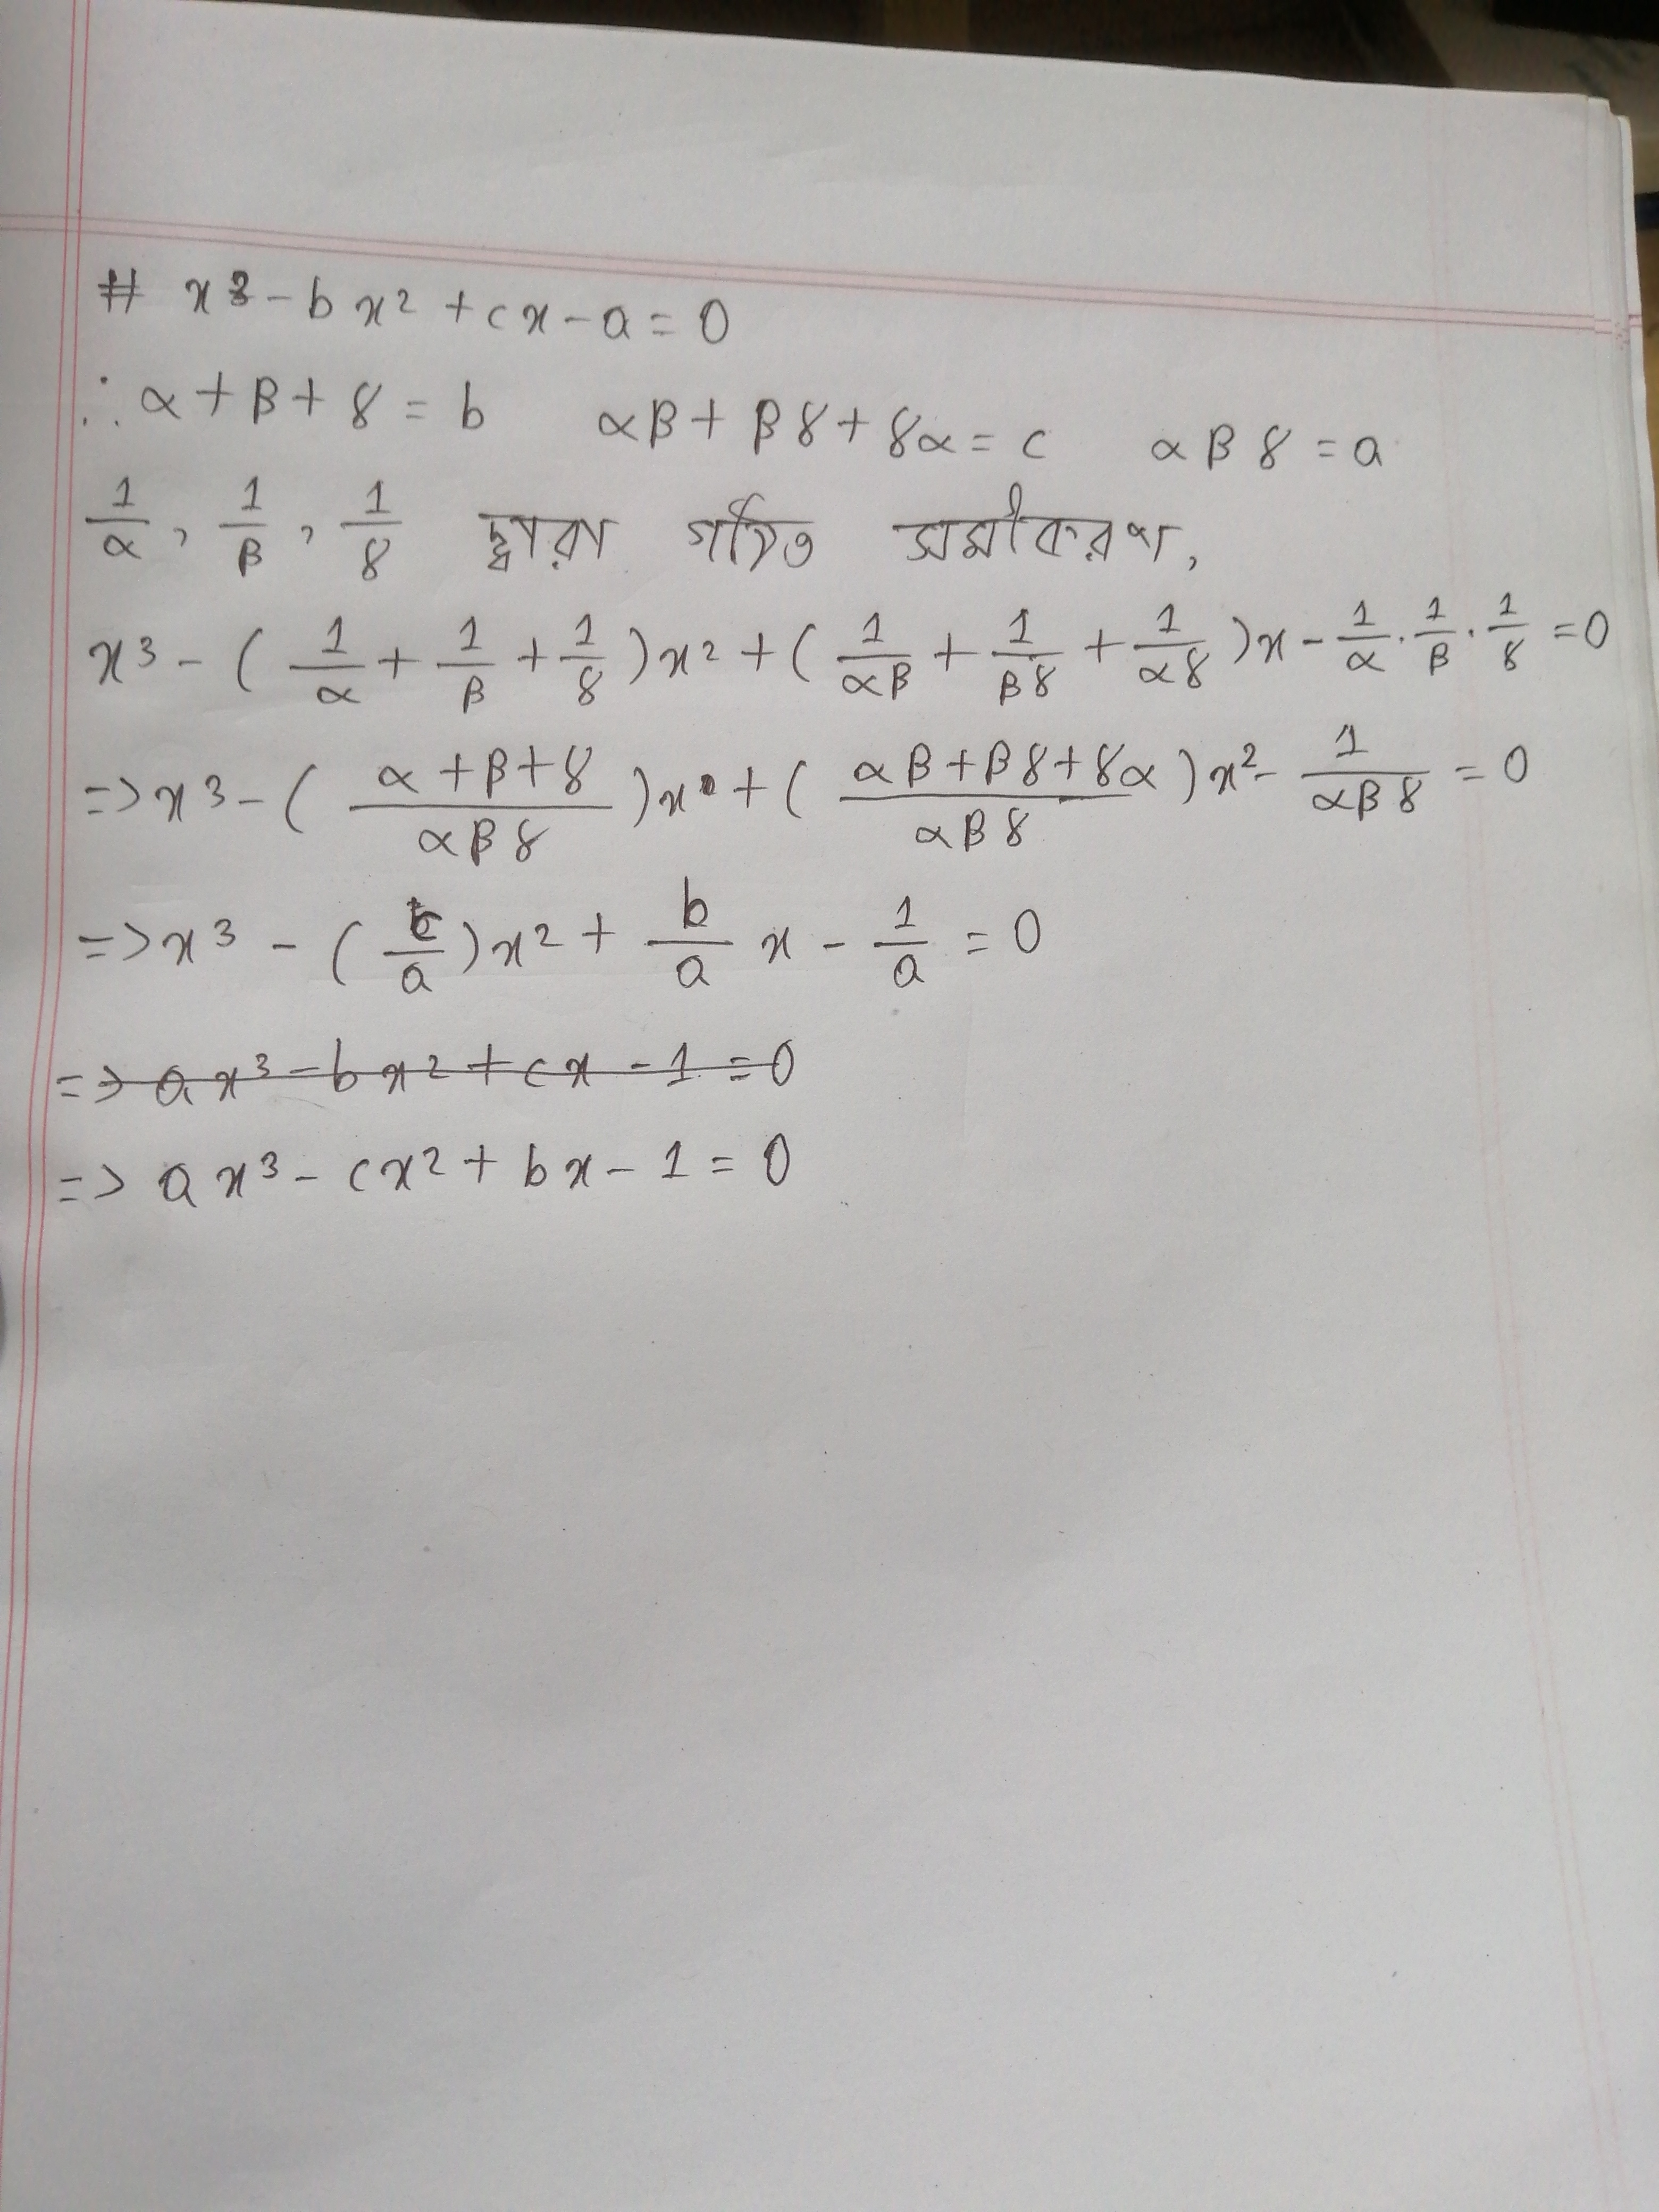 # x³ - bx² + cx - a = 0
∴ α + β + γ = b αβ + βγ + γα = c αβγ = a
1/α, 1/β, 1/γ দ্বারা গঠিত সমীকরণ,
x³ - (1/α + 1/β + 1/γ)x² + (1/αβ + 1/βγ + 1/αγ)x - 1/α · 1/β · 1/γ = 0
=> x³ - ((α + β + γ)/αβγ)x + ((αβ + βγ + γα)/αβγ)x² - 1/αβγ = 0
=> x³ - (c/a)x² + b/a x - 1/a = 0
=> ax³ - bx² + cx - 1 = 0
=> ax³ - cx² + bx - 1 = 0